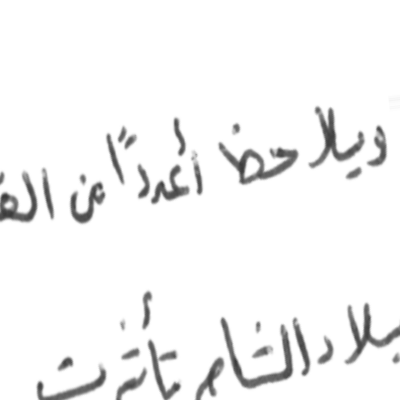 ويلاحظ أعددًا من
بلاد الشام تأثرت